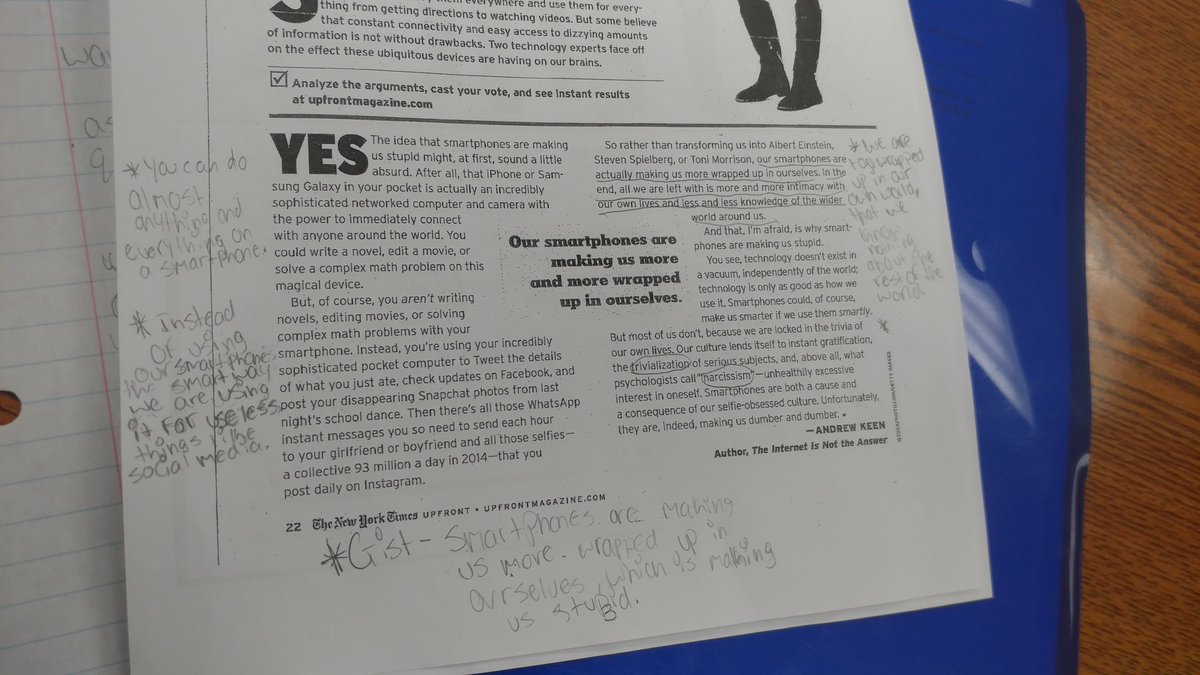 them everywhere and use them for every-
thing from getting directions to watching videos. But some believe
that constant connectivity and easy access to dizzying amounts
of information is not without drawbacks. Two technology experts face off
on the effect these ubiquitous devices are having on our brains.
Analyze the arguments, cast your vote, and see instant results
at upfrontmagazine.com
YES
The idea that smartphones are making
us stupid might, at first, sound a little
absurd. After all, that iPhone or Sam-
sung Galaxy in your pocket is actually an incredibly
sophisticated networked computer and camera with
the power to immediately connect
with anyone around the world. You
could write a novel, edit a movie, or
solve a complex math problem on this
magical device.
But, of course, you aren't writing
novels, editing movies, or solving
complex math problems with your
smartphone. Instead, you're using your incredibly
sophisticated pocket computer to Tweet the details
of what you just ate, check updates on Facebook, and
post your disappearing Snapchat photos from last
night's school dance. Then there's all those WhatsApp
instant messages you so need to send each hour
to your girlfriend or boyfriend and all those selfies—
a collective 93 million a day in 2014—that you
post daily on Instagram.
Our smartphones are
making us more
and more wrapped
up in ourselves.
So rather than transforming us into Albert Einstein,
Steven Spielberg, or Toni Morrison, our smartphones are
actually making us more wrapped up in ourselves. In the
end, all we are left with is more and more intimacy with
our own lives and less and less knowledge of the wider
world around us.
And that, I'm afraid, is why smart-
phones are making us stupid.
You see, technology doesn't exist in
a vacuum, independently of the world;
technology is only as good as how we
use it. Smartphones could, of course,
make us smarter if we use them smartly.
But most of us don't, because we are locked in the trivia of
our own lives. Our culture lends itself to instant gratification,
the trivialization of serious subjects, and, above all, what
psychologists call "narcissism"—unhealthily excessive
interest in oneself. Smartphones are both a cause and
a consequence of our selfie-obsessed culture. Unfortunately,
they are, indeed, making us dumber and dumber.
—ANDREW KEEN
Author, The Internet Is Not the Answer
22 The New York Times UPFRONT • UPFRONTMAGAZINE.COM
* You can do
almost
anything and
everything on
a smartphone.
* Instead
of using
our smartphones
the smart way
we are using
it for useless
things like
social media.
* We are
wrapped
up in our
own world,
that we
know
nothing
about the
rest of the
world.
*
*Gist - Smartphones are making
us more wrapped up in
ourselves, which is making
us stupid.